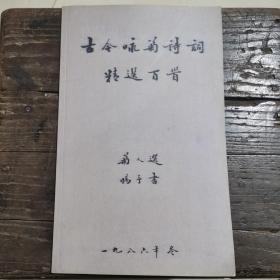 古今咏菊诗词
精选百首
菊人选
鸣予书
一九八六年冬